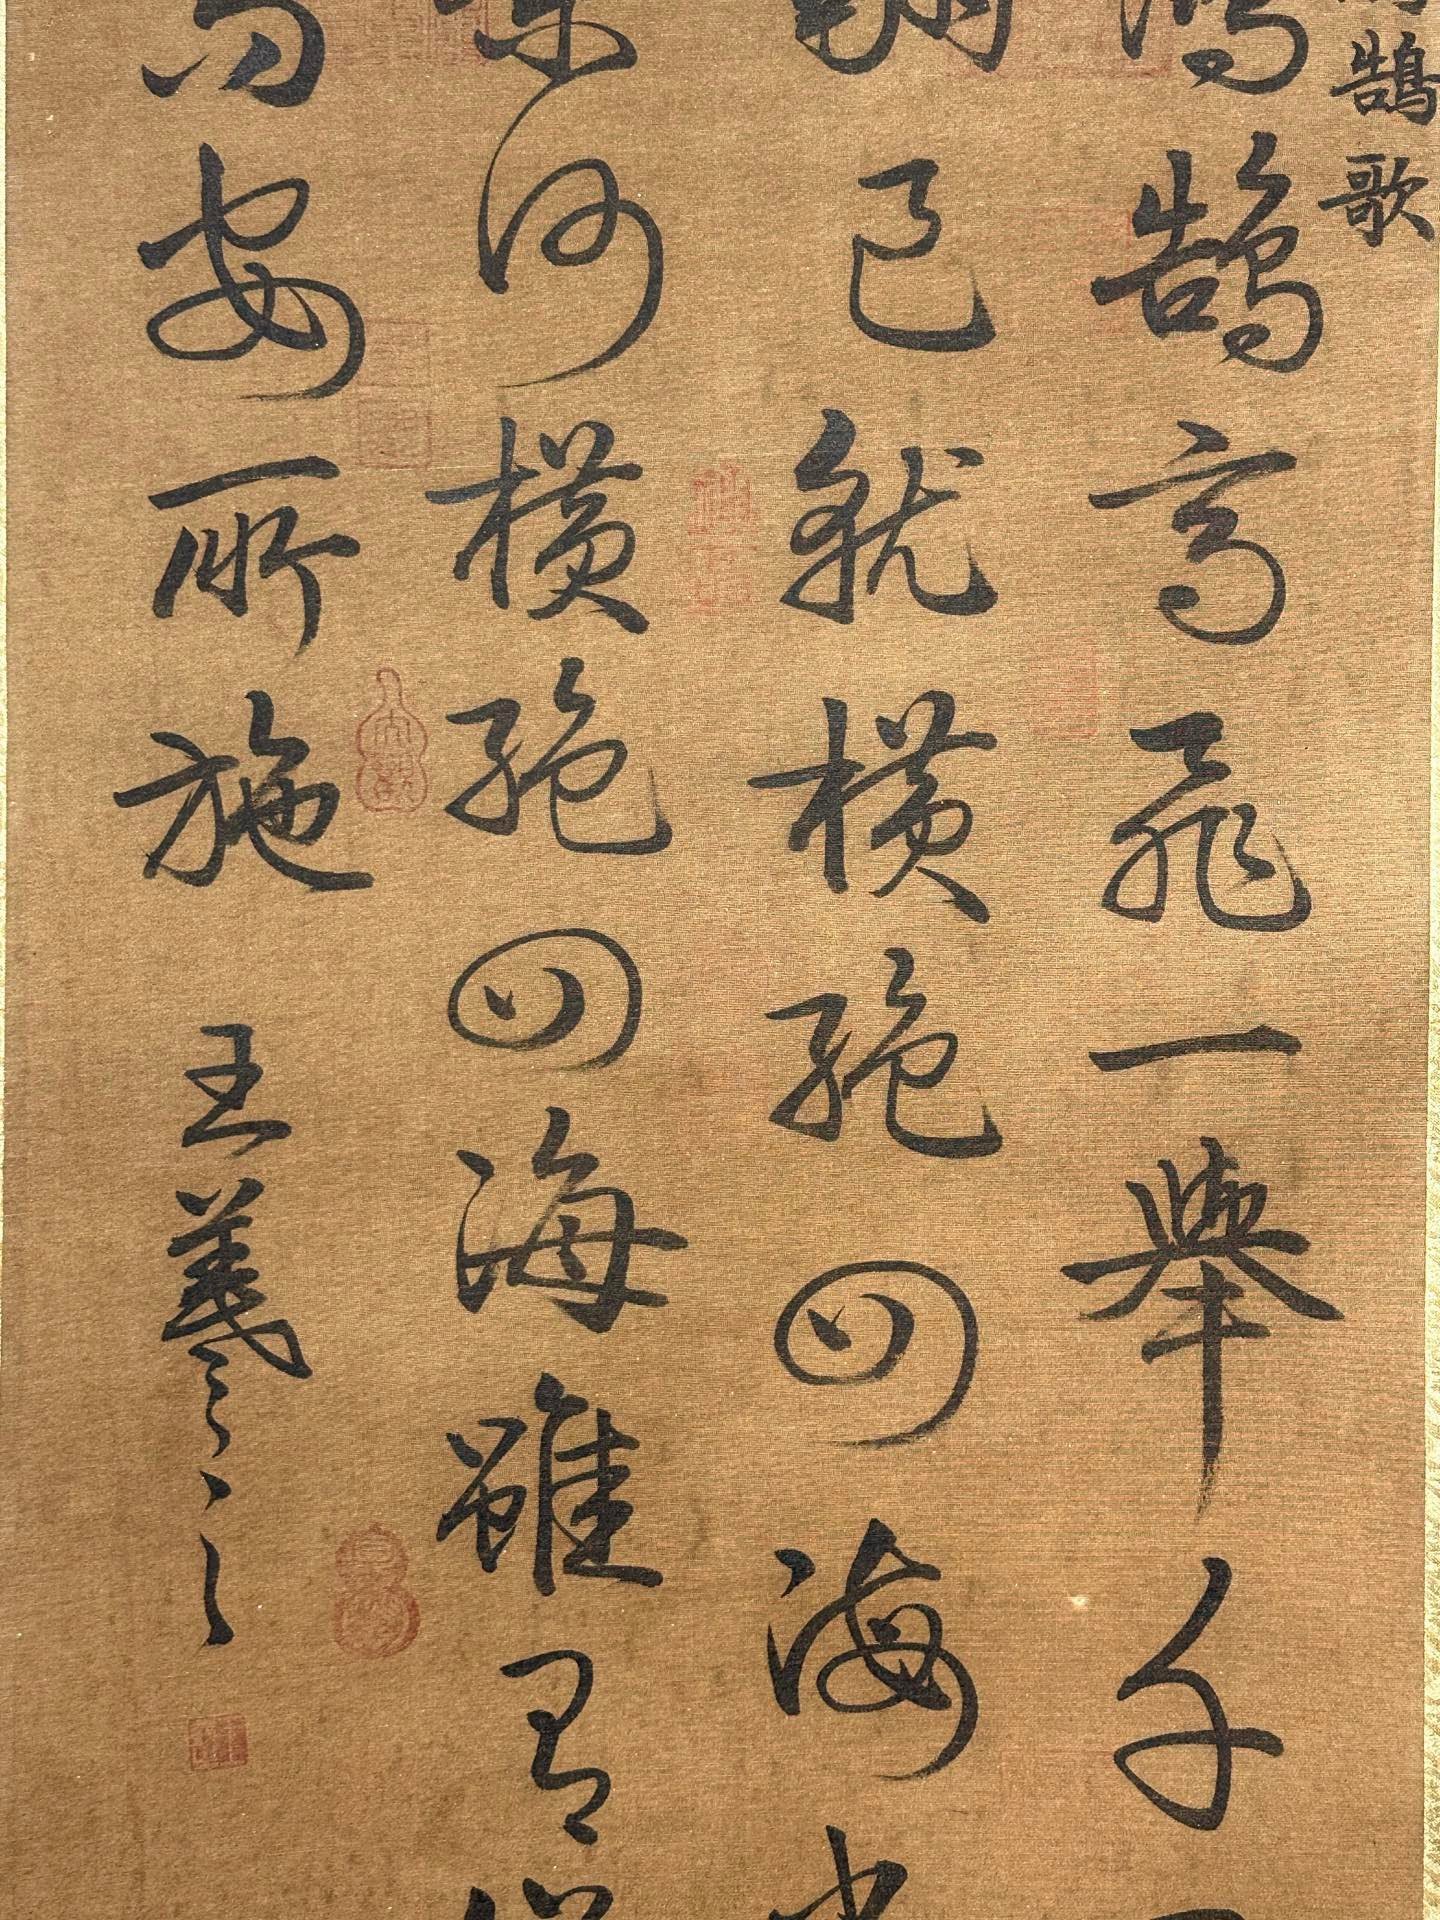 鵠歌
鴻鵠高飛一舉千
翮已就橫絕四海
奈何橫絕四海雖有
尚安所施 王羲之